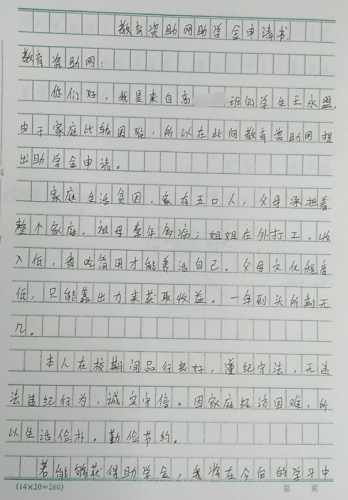 教育资助网助学金申请书
教育资助网：
你们好，我是来自高 班的学生王永盟，
由于家庭比较困难，所以在此向教育资助网提
出助学金申请。
家庭生活贫困，家有五口人，父母承担着
整个家庭，祖母常年多病；姐姐在外打工，收
入低，省吃简用才能养活自己。父母文化程度
低，只能靠出力来获取收益。一年到头所剩无
几。
本人在校期间品行良好，遵纪守法，无违
法违纪行为，诚实守信。因家庭经济困难，所
以生活俭朴，勤俭节约。
若能够获得助学金，我将在今后的学习中
(14×20=280)
第 页